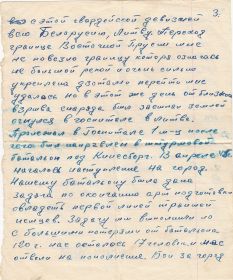 3.
с этой гвардейской дивизией
всю Белоруссию, Литву. Переход
границе Восточной Прусси мне
не повезло границу которая означалась
не большой рекой и очень сильно
укреплена удалось перейти мне
удалось но в этот же день от близкого
взрыва снаряда был засыпан землей
очнулся в госпитале в Литве.
Пролежал в госпитале 1 м-ц после
чего был направлен в штурмовой
батальон под Кинесберг. В апреле
началось наступление на город.
Нашему батальону была дана
задача по окончанию арт подготовки
овладеть первой линей траншей
немцев. Задачу мы выполнили но
с большими потерями от батальона
180 ч. нас осталось 17 человек и нас
отвели на пополнение. Бои за город